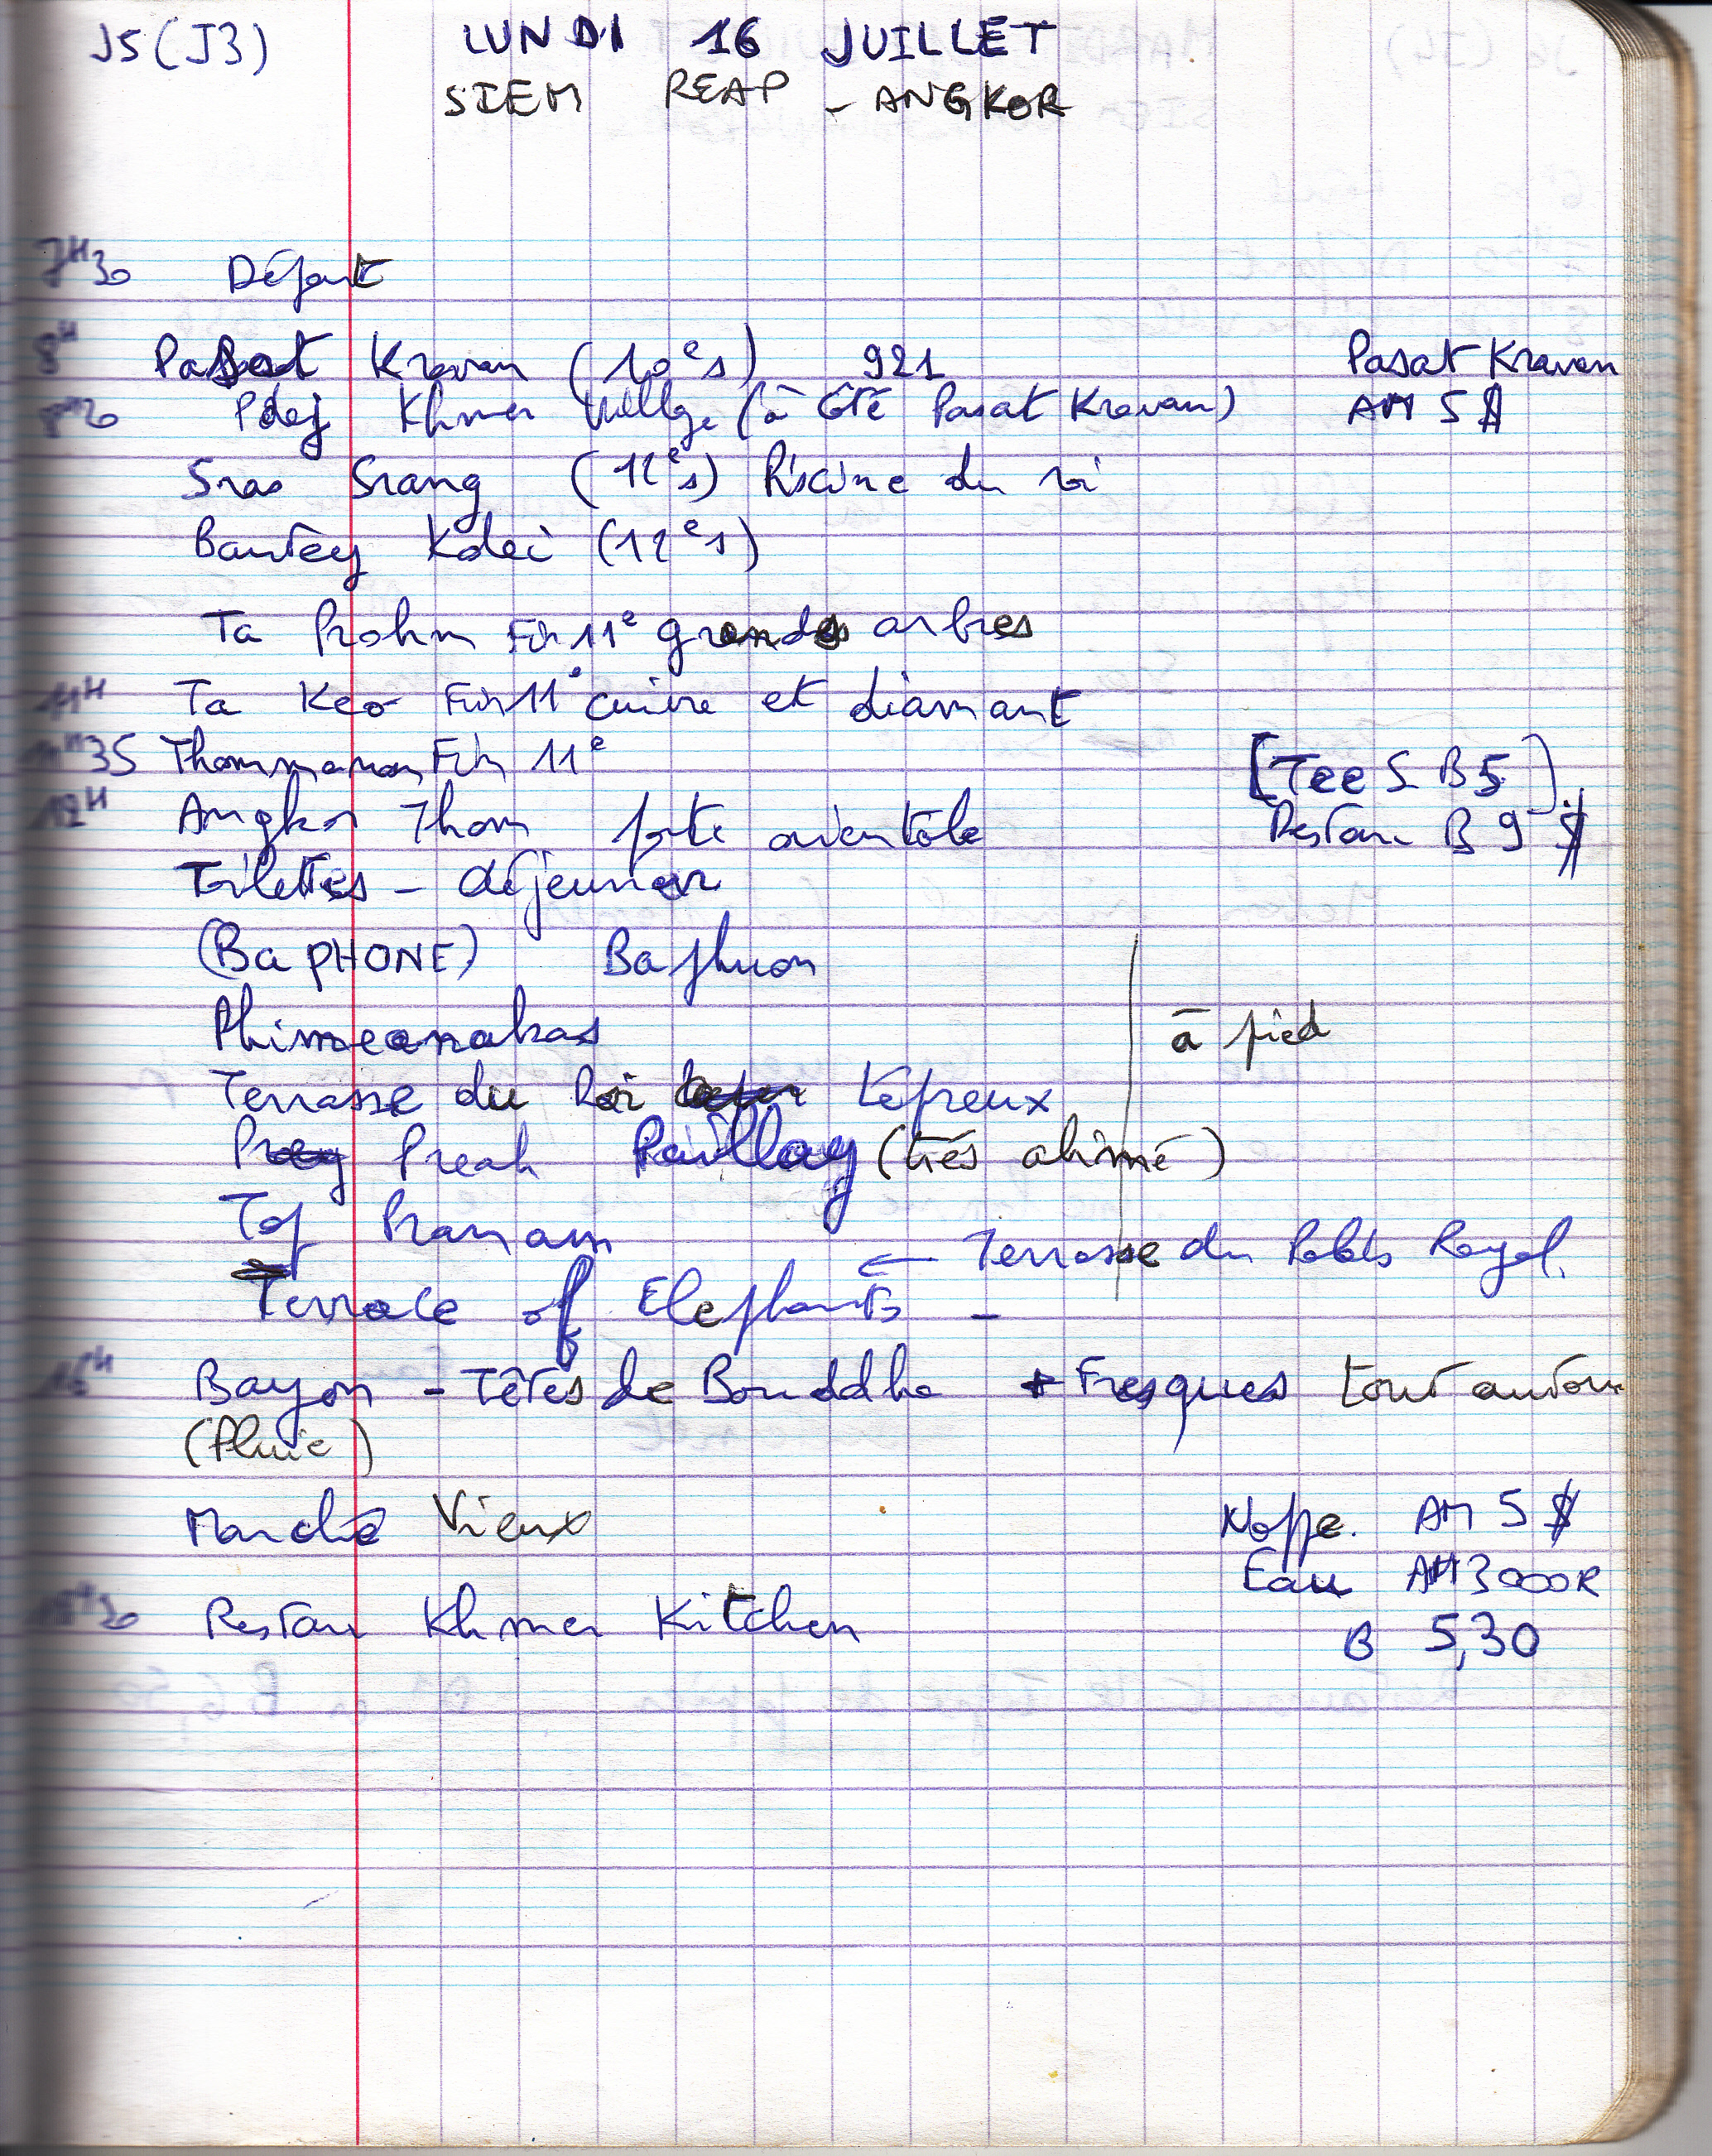 J5 (J3) LUNDI 16 JUILLET
SIEM REAP - ANGKOR
7H30 Départ
8H Pasat Kravan (10e s) 921 Pasat Kravan
Pdej Khmer Village (à côté Pasat Kravan) AM 5 $
Sras Srang (12e s) Piscine du roi
Bantey Kdei (12e s)
Ta Prohm Fin 11e grands arbres
11H Ta Keo Fin 11e cuivre et diamant
11H35 Thommanon Fin 11e [Tee S B 5]
12H Angkor Thom porte orientale Restau B 9 $
Toilettes - déjeuner
(Ba PHONE) Baphuon
Phimeanakas à pied
Terrasse du Roi Lépreux
Preah Paillay (très abimé)
Tep Pranam
← Terrasse du Palais Royal
Terrace of Elephants -
Bayon - Têtes de Bouddha + Fresques tout autour
(pluie)
Marché Vieux Nappe. AM 5 $
Eau AM 3000R
Restau Khmer Kitchen B 5,30